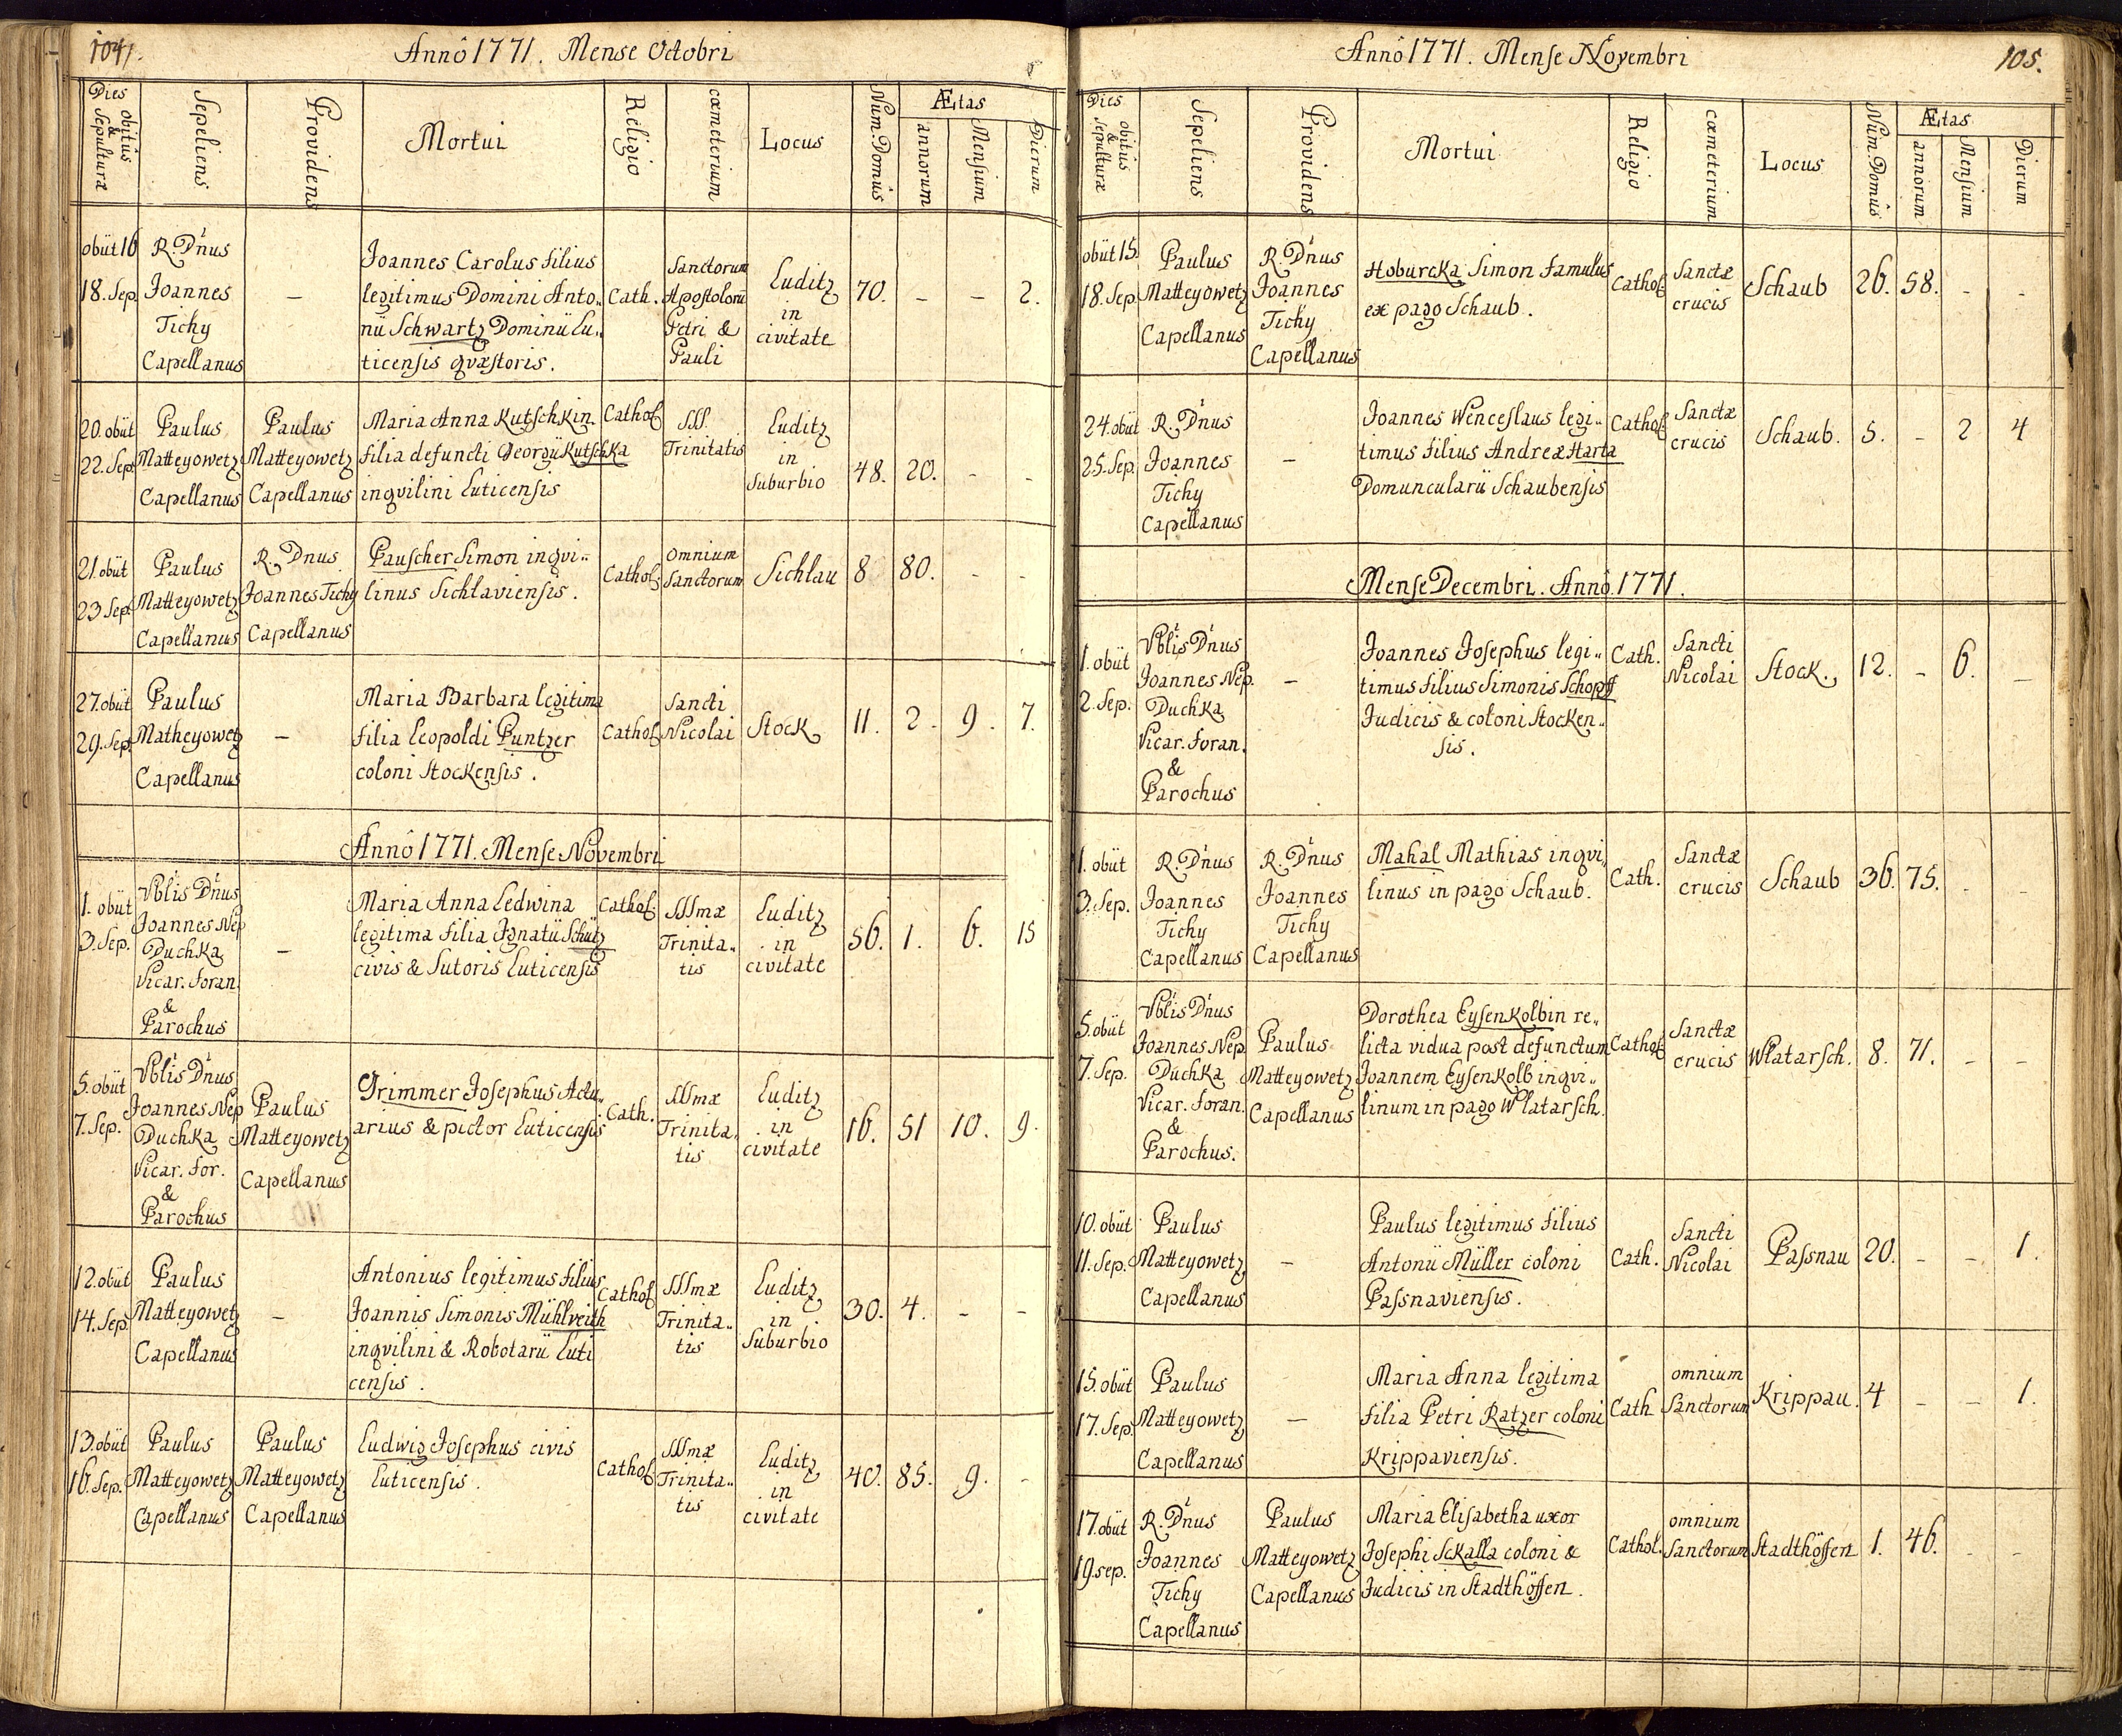 104.
Annô 1771. Mense Octobri
Dies obitûs & Sepulturæ
Sepeliens
Providens
Mortui
Religio
cæmeterium
Locus
Num. Domûs
Ætas
annorum
Mensium
Dierum
obiit 16
18. Sep.
R. D'nus
Joannes
Tichy
Capellanus
–
Joannes Carolus filius
legitimus Domini Anto..
nii Schwartz Dominii Lu..
ticensis quæstoris.
Cath.
Sanctorum
Apostolorũ
Petri &
Pauli
Luditz
in
civitate
70.
–
–
2.
20. obiit
22. Sep.
Paulus
Matteyowetz
Capellanus
Paulus
Matteyowetz
Capellanus
Maria Anna Kutschkin
filia defuncti Georgii Kutschka
inqvilini Luticensis
Cathol.
SSS.
Trinitatis
Luditz
in
Suburbio
48.
20.
-
-
21. obiit
23 Sep.
Paulus
Matteyowetz
Capellanus
R. Dnus
Joannes Tichy
Capellanus
Pauscher Simon inqvi..
linus Sichlaviensis.
Cathol.
Omnium
Sanctorum
Sichlau
8
80.
-
-
27. obiit
29. Sep.
Paulus
Matheyowetz
Capellanus
–
Maria Barbara legitima
filia Leopoldi Puntzer
coloni Stockensis.
Cathol.
Sancti
Nicolai
Stock
11.
2.
9.
7.
Annô 1771. Mense Novembri
1. obiit
3. Sep.
Vblis D'nus
Joannes Nep
Duchka
Vicar. foran.
&
Parochus
–
Maria Anna Ledwina
legitima filia Ignatii Schütz
civis & Sutoris Luticensis
Cathol.
SSSmæ
Trinita..
tis
Luditz
in
civitate
56.
1.
6.
15
5. obiit
7. Sep.
Vblis D'nus
Joannes Nep
Duchka
Vicar. for.
&
Parochus
Paulus
Matteyowetz
Capellanus
Grimmer Josephus Actu..
arius & pictor Luticensis
Cath.
SSSmæ
Trinita..
tis
Luditz
in
civitate
16.
51
10.
9.
12. obiit
14. Sep
Paulus
Matteyowetz
Capellanus
–
Antonius legitimus filius
Joannis Simonis Mühlveith
inqvilini & Robotarii Luti
censis.
Cathol.
SSSmæ
Trinita..
tis
Luditz
in
Suburbio
30.
4.
-
-
13. obiit
16. Sep.
Paulus
Matteyowetz
Capellanus
Paulus
Matteyowetz
Capellanus
Ludwig Josephus civis
Luticensis.
Cathol.
SSSmæ
Trinita..
tis
Luditz
in
civitate
40.
85.
9.
-
Annô 1771. Mense Novembri
105.
Dies obitûs & Sepulturæ
Sepeliens
Providens
Mortui
Religio
cæmeterium
Locus
Num. Domûs
Ætas
annorum
Mensium
Dierum
obiit 15.
18. Sep.
Paulus
Matteyowetz
Capellanus
R. D'nus
Joannes
Tichy
Capellanus
Hoburcka Simon famulus
ex pago Schaub.
Cathol.
Sanctæ
crucis
Schaub
26.
58.
-
-
24. obiit
25. Sep.
R. D'nus
Joannes
Tichy
Capellanus
–
Joannes Wenceslaus legi..
timus filius Andreæ Harta
Domuncularii Schaubensis
Cathol.
Sanctæ
crucis
Schaub.
5.
-
2
4
Mense Decembri. Annô 1771.
1. obiit
2. Sep.
Vblis D'nus
Joannes Nep.
Duchka
Vicar. foran.
&
Parochus
–
Joannes Josephus legi..
timus filius Simonis Schopff
Judicis & coloni Stocken..
sis.
Cath.
Sancti
Nicolai
Stock.
12.
-
6.
-
1. obiit
3. Sep.
R. D'nus
Joannes
Tichy
Capellanus
R. D'nus
Joannes
Tichy
Capellanus
Mahal Mathias inqvi..
linus in pago Schaub.
Cath.
Sanctæ
crucis
Schaub
36.
75.
-
-
5. obiit
7. Sep.
Vblis D'nus
Joannes Nep.
Duchka
Vicar. foran.
&
Parochus.
Paulus
Matteyowetz
Capellanus
Dorothea Eysenkolbin re..
licta vidua post defunctum
Joannem Eysenkolb inqvi..
linum in pago Wlatarsch.
Cathol.
Sanctæ
crucis
Wlatarsch.
8.
71.
-
-
10. obiit
11. Sep.
Paulus
Matteyowetz
Capellanus
–
Paulus legitimus filius
Antonii Müller coloni
Passnaviensis.
Cath.
Sancti
Nicolai
Passnau
20.
-
-
1.
15. obiit
17. Sep.
Paulus
Matteyowetz
Capellanus
–
Maria Anna legitima
filia Petri Ratzer coloni
Krippaviensis.
Cath
omnium
Sanctorum
Krippau.
4
-
-
1.
17. obiit
19. sep.
R. D'nus
Joannes
Tichy
Capellanus
Paulus
Matteyowetz
Capellanus
Maria Elisabetha uxor
Josephi Sckalla coloni &
Judicis in Stadthöffen.
Cathol.
omnium
Sanctorum
Stadthöffen
1.
46.
-
-